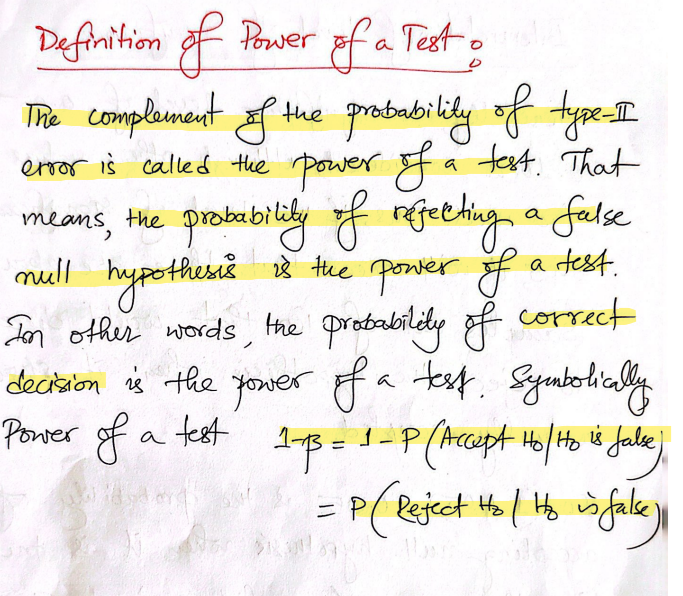 Definition of Power of a Test:
The complement of the probability of type-II
error is called the power of a test. That
means, the probability of rejecting a false
null hypothesis is the power of a test.
In other words, the probability of correct
decision is the power of a test. Symbolically
Power of a test 1-β = 1 - P(Accept H₀/H₀ is false)
= P(Reject H₀ / H₀ is false)